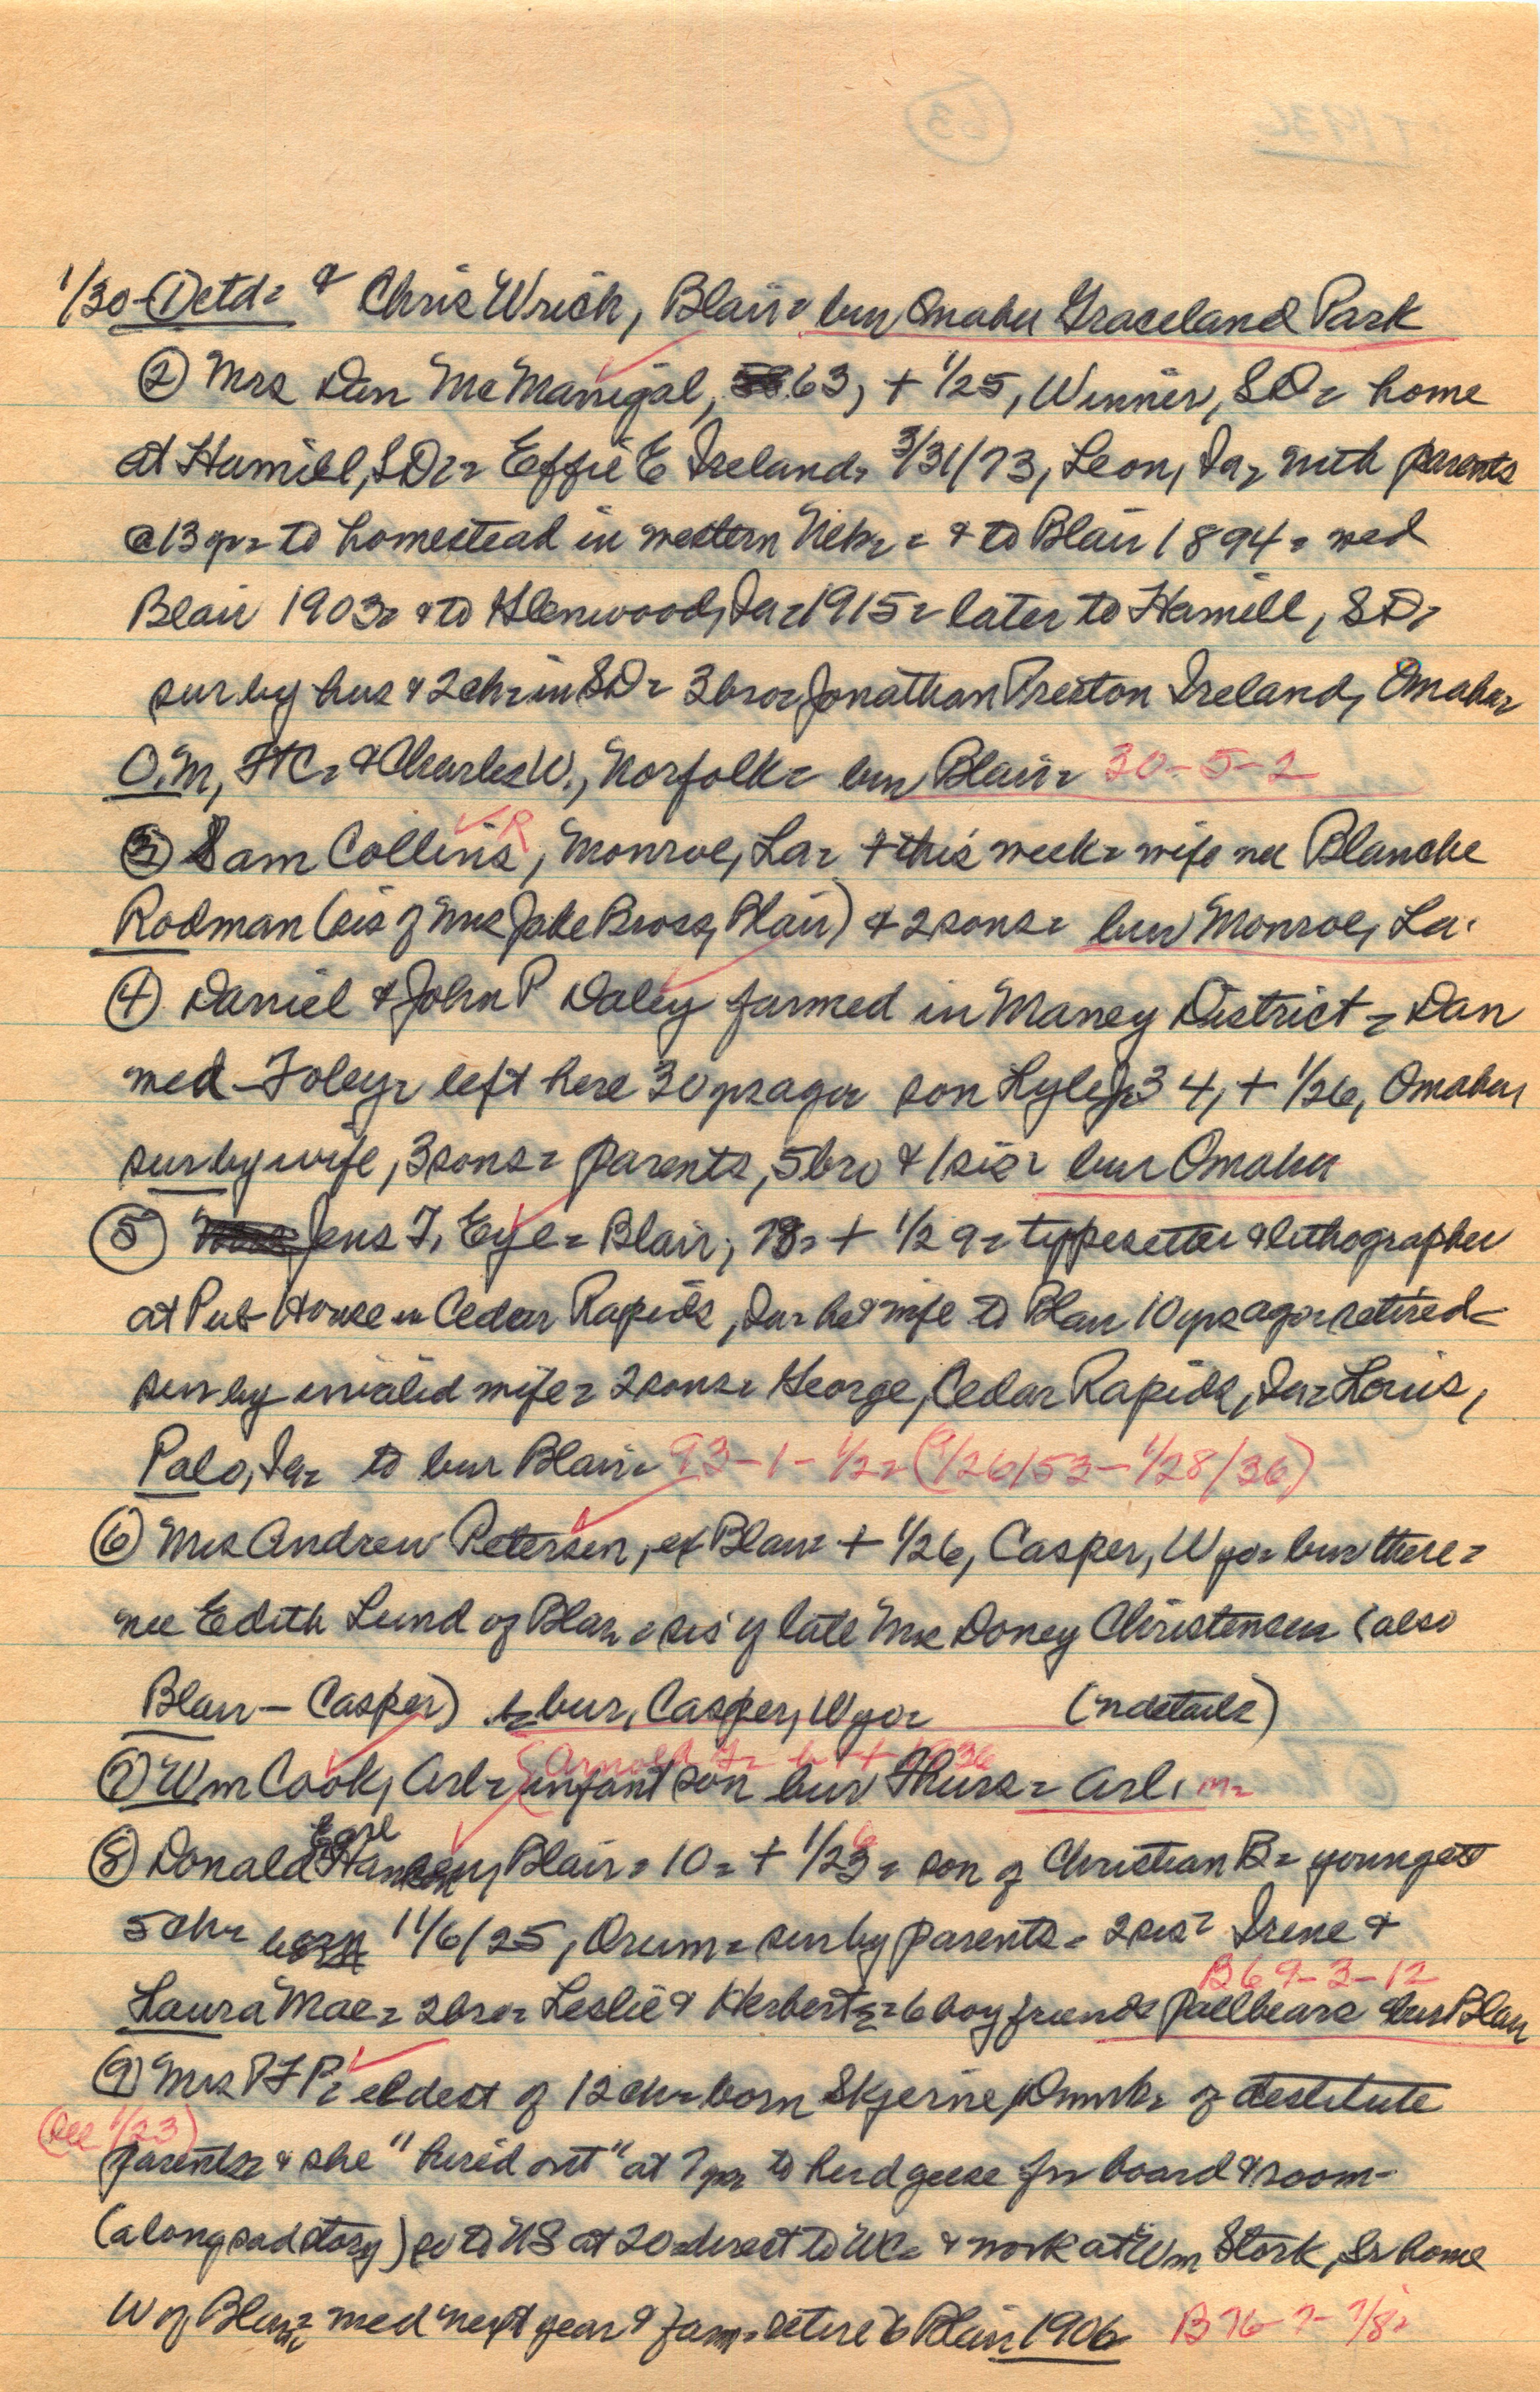 1/30 - ① ctd = & Chris Wrich, Blair = bur Omaha Graceland Park
② Mrs Dan McManigal, 63, + 1/25, Winner, SD = home
at Hamill, SD = Effie E Ireland = 3/31/73, Leon, Ia = with parents
@ 13 yr = to homestead in western Nebr = & to Blair 1894 = wed
Blair 1903 = & to Glenwood, Ia = 1915 = later to Hamill, SD =
sur by hus & 2 ch = in SD = 3 bro = Jonathan Preston Ireland, Omaha =
O.M, FtC = & Charles W., Norfolk = bur Blair = 30-5-2
③ Sam Collins, Monroe, La = + this week = wife nee Blanche
Rodman (sis of Mrs Jake Bross, Blair) & 2 sons = bur Monroe, La.
④ Daniel & John P Daley farmed in Maney District = Dan
wed - Foley = left here 30 yrs ago = son Lyle J = 34, + 1/26, Omaha,
sur by wife, 3 sons = parents, 5 bro & 1 sis = bur Omaha
⑤ Jens T. Eye = Blair, 78 = + 1/29 = typesetter & lithographer
at Pub House in Cedar Rapids, Ia = he & wife to Blair 10 yrs ago = retired =
sur by invalid wife = 2 sons = George, Cedar Rapids, Ia = Louis,
Palo, Ia = to bur Blair = 93-1-1/2 = (9/26/53 - 1/28/36)
⑥ Mrs Andrew Petersen, ex Blair = + 1/26, Casper, Wyo = bur there =
nee Edith Lund of Blair = sis of late Mrs Doney Christensen (also
Blair - Casper) = bur, Casper, Wyo = (n details)
(Arnold 1936
⑦ Wm Cook, Arl = infant son bur Thurs = Arl. m=
⑧ Donald Earl Hansen, Blair = 10 = + 1/26 = son of Christian B = youngest
5 ch = born 11/6/25, Orum = sur by parents = 2 sis = Irene &
B69-3-12
Laura Mae = 2 bro = Leslie & Herbert = 6 boy friends pallbears = bur Blair
⑨ Mrs P F P = eldest of 12 ch = born Skjerne, Dnmk = of destitute
(See 1/23)
parents = & she "hired out" at 7 yr to herd geese for board & room -
(a long sad story) so to US at 20 = direct to WC = & work at Wm Stork, Sr home
W of Blair = wed next year & farm = retire to Blair 1906 B76-7-7/8 =